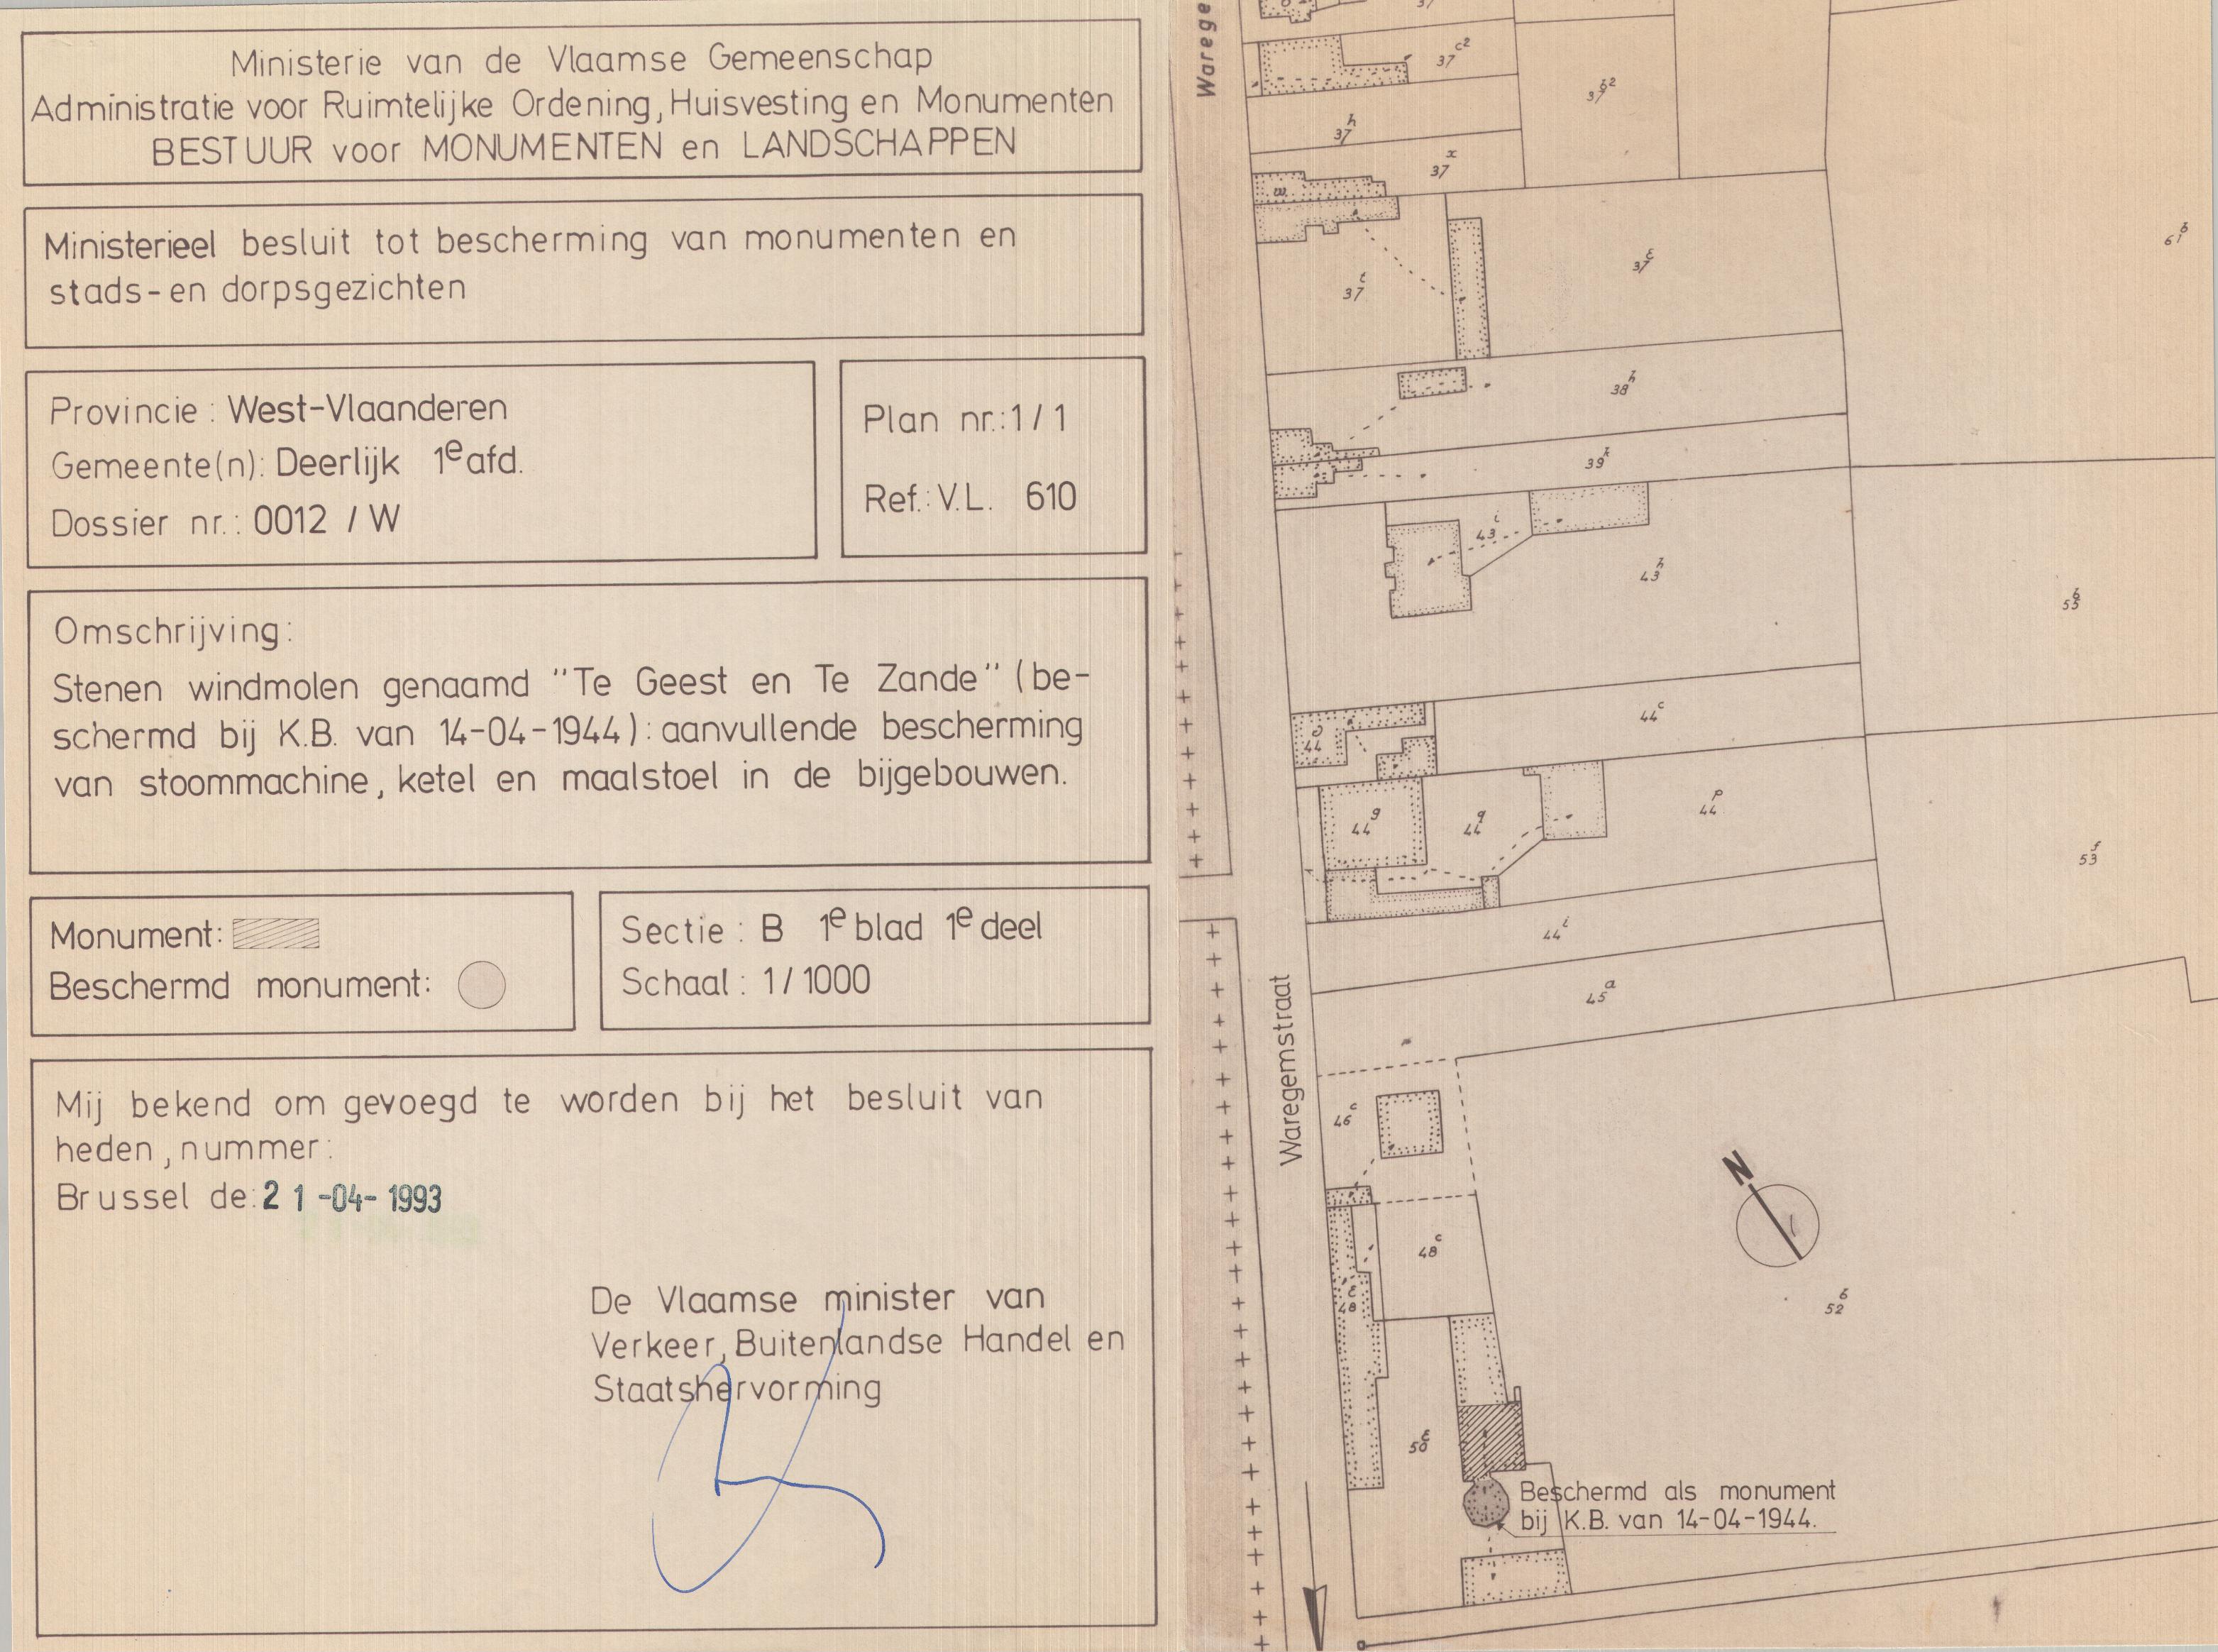 Ministerie van de Vlaamse Gemeenschap
Administratie voor Ruimtelijke Ordening, Huisvesting en Monumenten
BESTUUR voor MONUMENTEN en LANDSCHAPPEN
Ministerieel besluit tot bescherming van monumenten en
stads-en dorpsgezichten
Provincie : West-Vlaanderen
Gemeente(n): Deerlijk 1e afd.
Dossier nr.: 0012 / W
Plan nr.: 1/1
Ref.: V.L. 610
Omschrijving:
Stenen windmolen genaamd "Te Geest en Te Zande" (be-
schermd bij K.B. van 14-04-1944): aanvullende bescherming
van stoommachine, ketel en maalstoel in de bijgebouwen.
Monument:
Beschermd monument:
Sectie : B 1e blad 1e deel
Schaal : 1/1000
Mij bekend om gevoegd te worden bij het besluit van
heden, nummer:
Brussel de: 21-04-1993
De Vlaamse minister van
Verkeer, Buitenlandse Handel en
Staatshervorming
Warege
37
37 c2
37 b2
37 h
37 x
w
61 b
37 t
38 h
39 k
43 i
43 h
55 b
44 c
44
44 g
44 q
44 p
53 f
45 a
Waregemstraat
46 c
48 c
48
N
52 b
50
Beschermd als monument
bij K.B. van 14-04-1944.